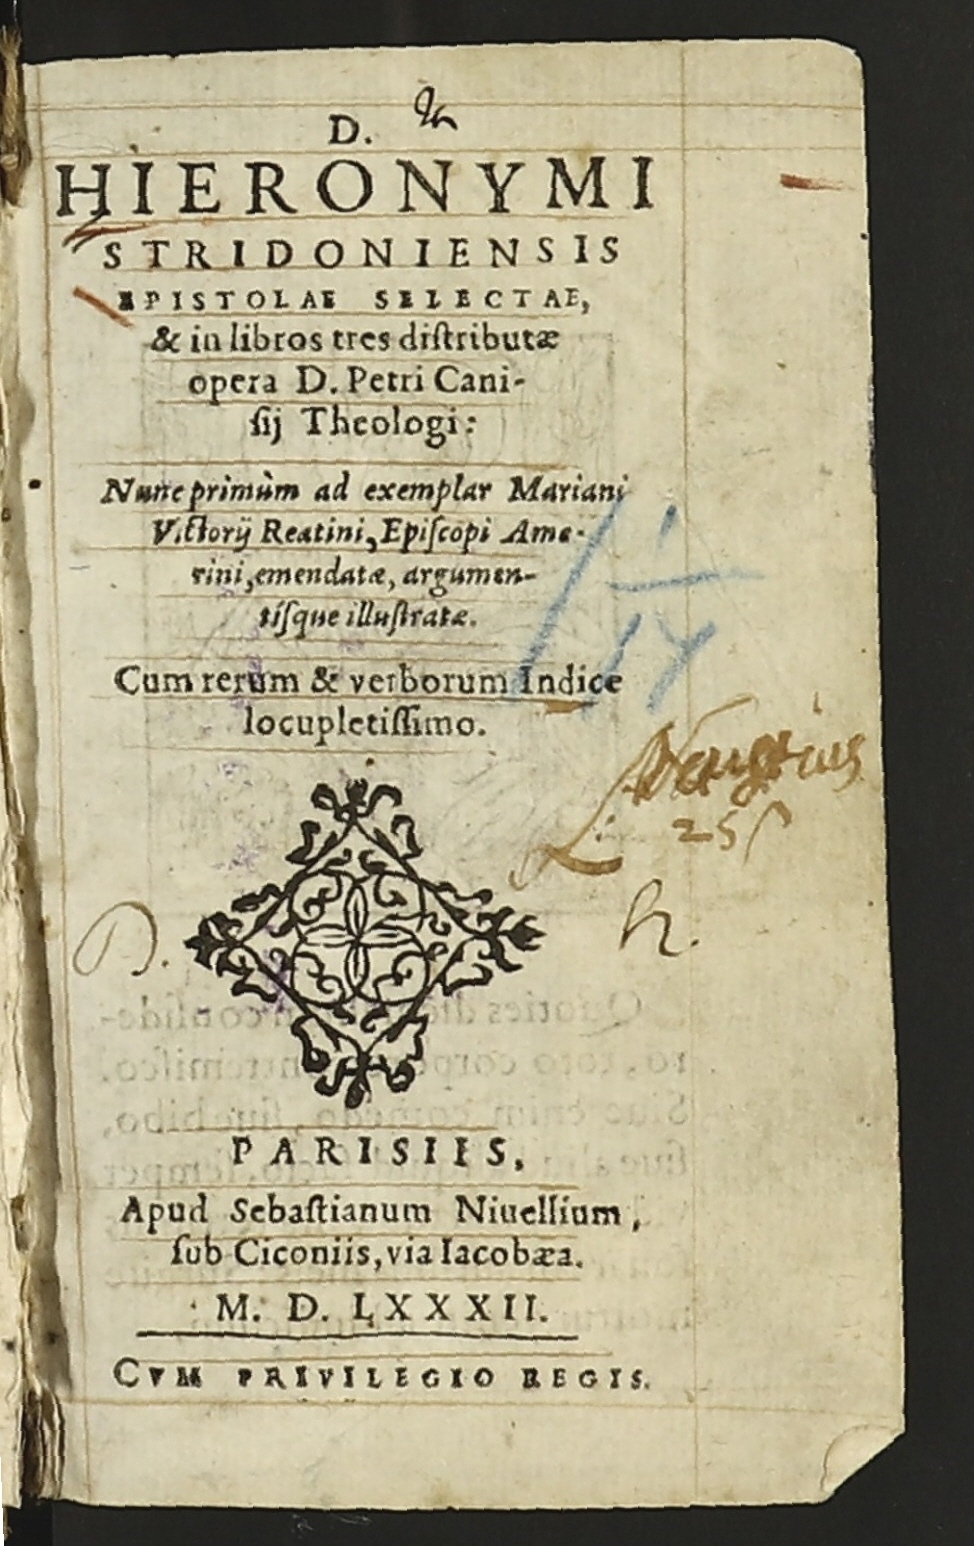 D.
HIERONYMI
STRIDONIENSIS
EPISTOLAE SELECTAE,
& in libros tres distributæ
opera D. Petri Cani-
sij Theologi:
Nunc primùm ad exemplar Mariani
Victorij Reatini, Episcopi Ame-
rini, emendatæ, argumen-
tísque illustratæ.
Cum rerum & verborum Indice
locupletissimo.
25
D.
h.
PARISIIS,
Apud Sebastianum Niuellium,
sub Ciconiis, via Iacobæa.
M. D. LXXXII.
CVM PRIVILEGIO REGIS.